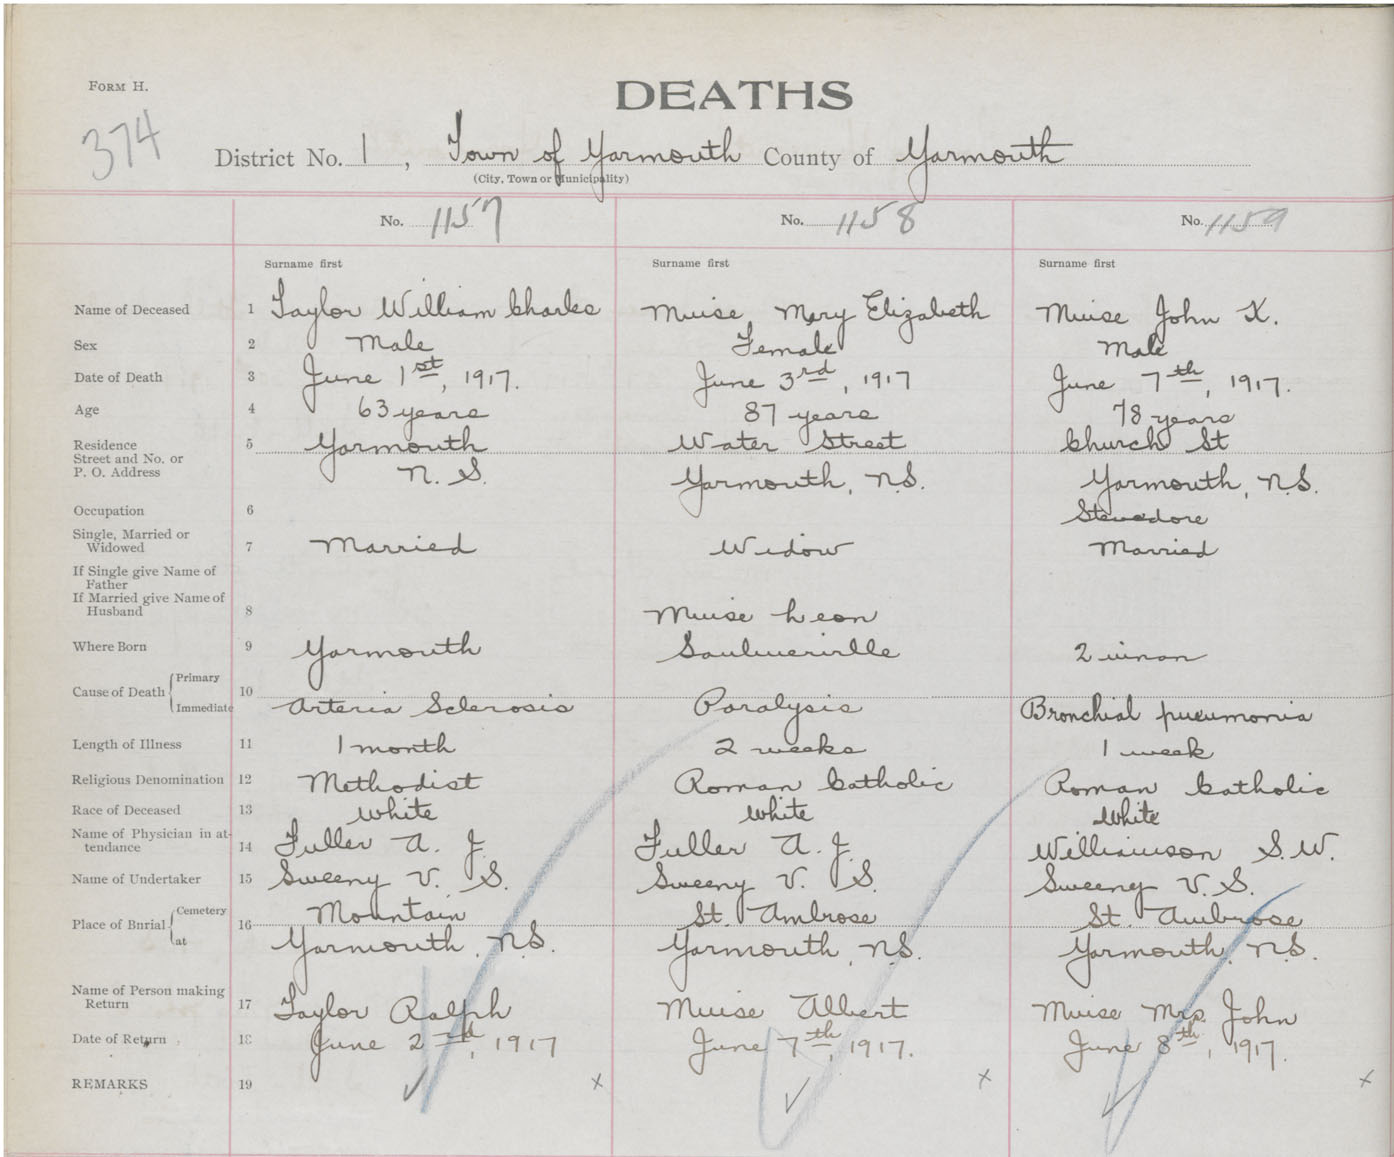 FORM H.
DEATHS
374
District No. 1, Town of Yarmouth County of Yarmouth
(City, Town or Municipality)
No. 1157 No. 1158 No. 1159
Surname first Surname first Surname first
Name of Deceased 1 Taylor William Charles Muise Mary Elizabeth Muise John X.
Sex 2 Male Female Male
Date of Death 3 June 1st, 1917. June 3rd, 1917 June 7th, 1917.
Age 4 63 years 87 years 78 years
Residence 5 Yarmouth Water Street Church St
Street and No. or
P. O. Address N. S. Yarmouth, N.S. Yarmouth, N.S.
Occupation 6 Stevedore
Single, Married or
Widowed 7 Married Widow Married
If Single give Name of
Father
If Married give Name of
Husband 8 Muise Leon
Where Born 9 Yarmouth Saulnierville
Cause of Death Primary 10
Immediate Arteria Sclerosis Paralysis Bronchial pneumonia
Length of Illness 11 1 month 2 weeks 1 week
Religious Denomination 12 Methodist Roman Catholic Roman Catholic
Race of Deceased 13 White White White
Name of Physician in at-
tendance 14 Fuller A. J. Fuller A. J. Williamson S. W.
Name of Undertaker 15 Sweeny V. S. Sweeny V. S. Sweeny V. S.
Place of Burial Cemetery 16 Mountain St. Ambrose St. Ambrose
at Yarmouth, N.S. Yarmouth, N.S. Yarmouth, N.S.
Name of Person making
Return 17 Taylor Ralph Muise Albert Muise Mrs. John
Date of Return 18 June 2nd, 1917 June 7th, 1917. June 8th, 1917.
REMARKS 19 x x x